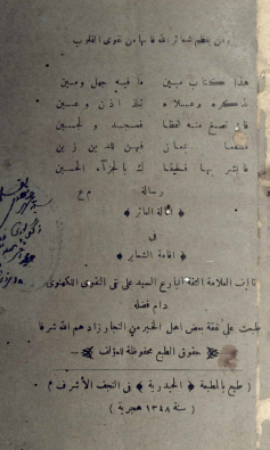 ومن يعظم شعائر الله فانها من تقوى القلوب
هذا كتاب مبين ما فيه جهل ومين
تذكره وعلاه تلذ اذن وعين
فان تصغ منه لفظا فسجد ولجين
فهن للدين زين
فابشر بها فلبقا ك بالجزاء الحسين
رسالة
﴿ اقالة العاثر ﴾
في
﴿ اقامة الشعاير ﴾
تأليف العلامة الثقة البارع السيد علي نقي النقوي اللكهنوي
دام فضله
طبعت على نفقة بعض اهل الخير من التجار زادهم الله شرفا
حقوق الطبع محفوظة للمؤلف
( طبع بالمطبعة ﴿ الحيدرية ﴾ في النجف الأشرف
( سنة ١٣٤٨ هجرية )